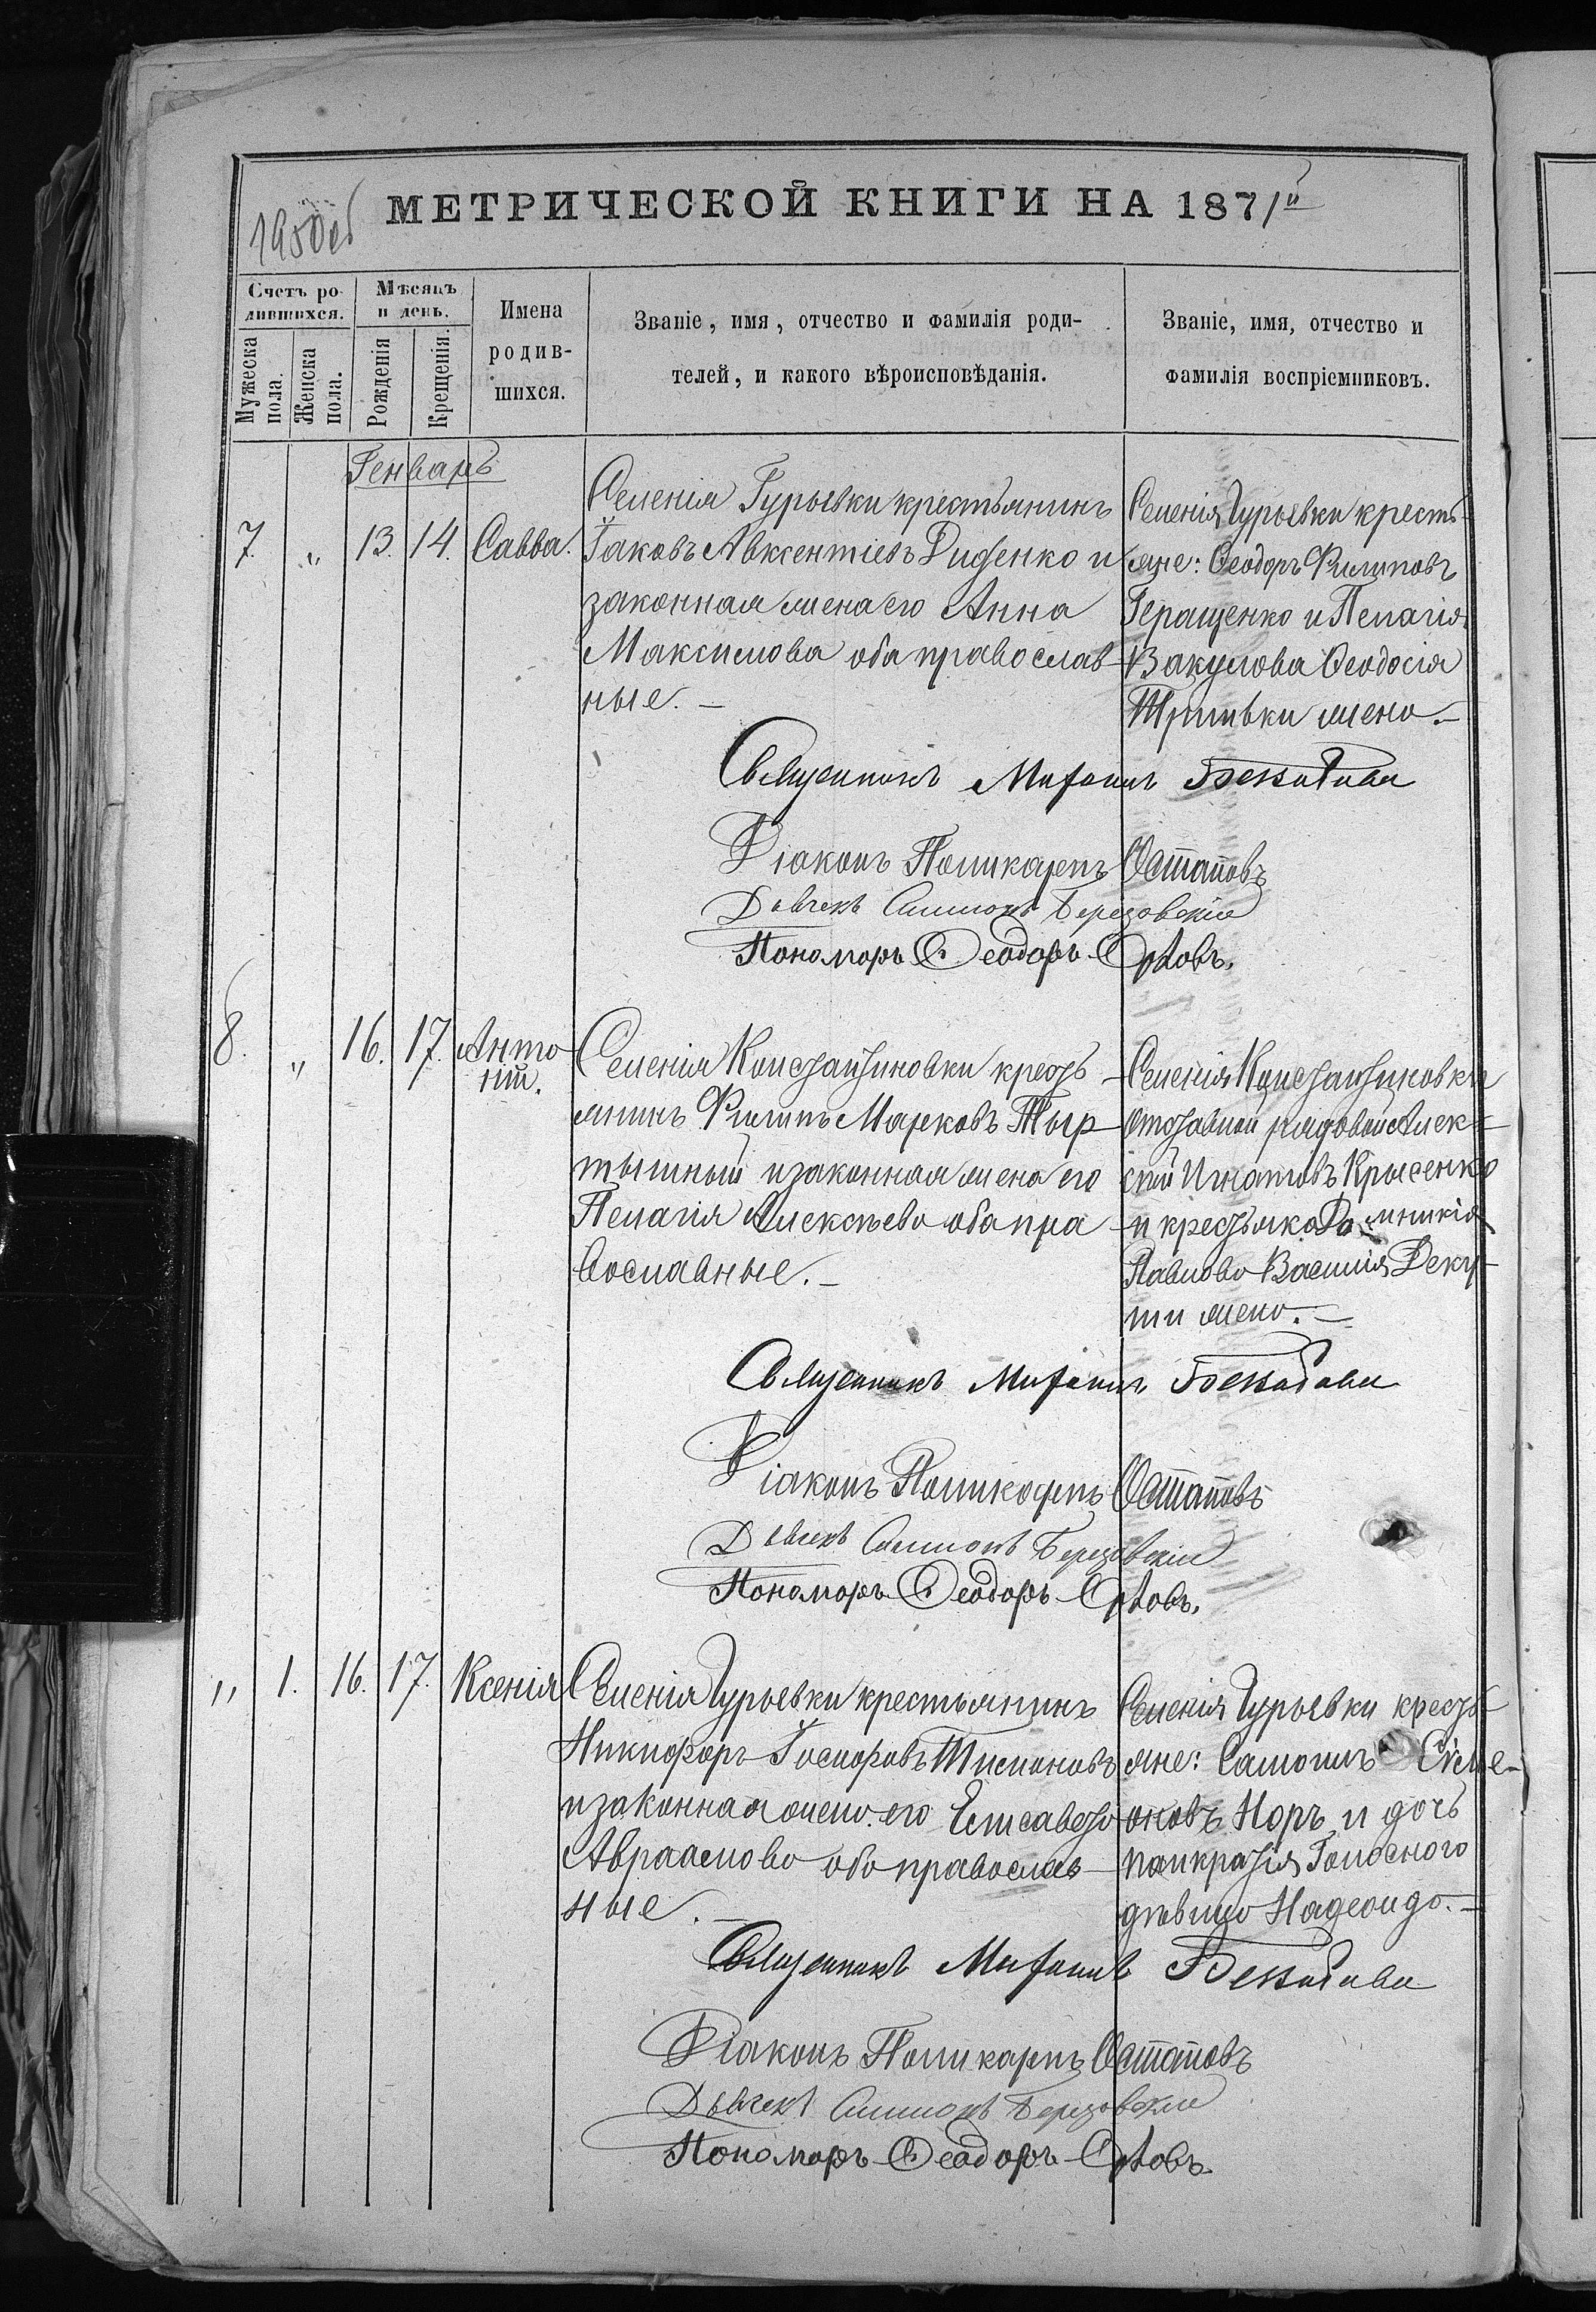 МЕТРИЧЕСКОЙ КНИГИ НА 1871й
195об
Счетъ ро-
дившихся.
Мѣсяцъ
и день.
Мужеска
пола.
Женска
пола.
Рожденія
Крещенія.
Имена
родив-
шихся.
Званіе, имя, отчество и фамилія роди-
телей, и какого вѣроисповѣданія.
Званіе, имя, отчество и
фамилія воспріемниковъ.
Генварь
7. „ 13. 14. Савва.
Селенія Гурьевки крестьянинъ
Іаковъ Авксентіевъ Диденко и
законная жена его Анна
Максимова оба православ-
ные. –
Селенія Гурьевки кресть-
яне: Ѳеодоръ Филиповъ
Геращенко и Пелагія
Вакулова Ѳеодосія
жена. –
Священникъ Михаилъ
Діаконъ Поликарпъ Остаповъ
Дьячекъ Симеонъ Березовскій
Пономарь Ѳеодоръ Орловъ.
8. „ 16. 17. Анто-
ній.
Селенія Константиновки кресть-
янинъ Филипъ Марковъ Тыр-
тышный и законная жена его
Пелагія Алексѣева оба пра-
вославные. –
Селенія Константиновки
отставной рядовой Алек-
сѣй Игнатовъ Крысенко
и крестьянка Домникія
Павлова Василія Деку-
ши жена. –
Священникъ Михаилъ
Діаконъ Поликарпъ Остаповъ
Дьячекъ Симеонъ Березовскій
Пономарь Ѳеодоръ Орловъ.
„ 1. 16. 17. Ксенія
Селенія Гурьевки крестьянинъ
Никифоръ Іосифовъ Тимоновъ
и законная жена его Елисавета
Авраамова оба православ-
ные. –
Селенія Гурьевки кресть-
яне: Самоилъ Симе-
оновъ Норъ и дочь
Панкратія Голосного
дѣвица Надежда. –
Священникъ Михаилъ
Діаконъ Поликарпъ Остаповъ
Дьячекъ Симеонъ Березовскій
Пономарь Ѳеодоръ Орловъ.